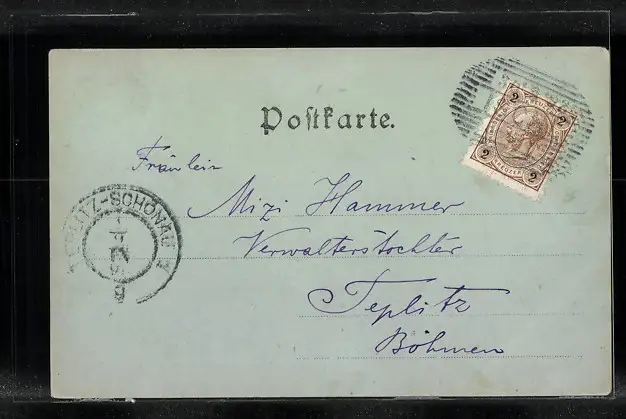 Postkarte.
2 2
2 2
KREUZER
Fräulein
Mizi Hammer
Verwalterstochter
Teplitz
Böhmen
TEPLITZ-SCHÖNAU